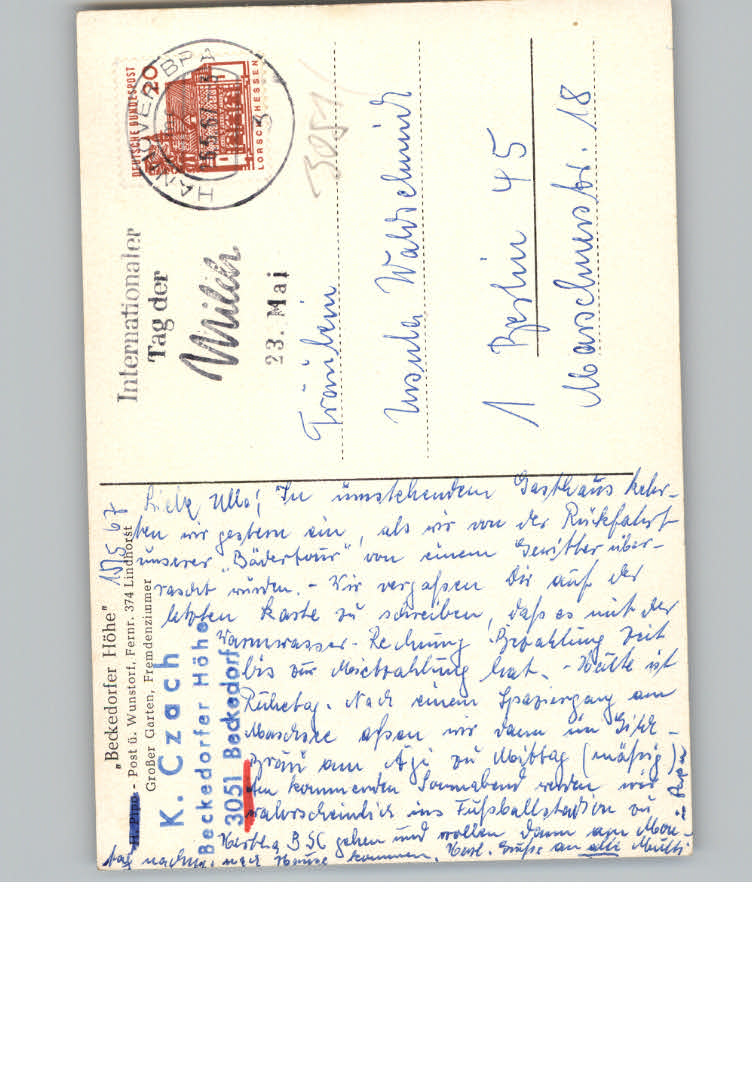 DEUTSCHE BUNDESPOST
20
LORSCH HESSEN
HANNOVER BPA
3
Internationaler
Tag der
Milch
23. Mai
3051
Fräulein
Ursula Waldschmidt
1 Berlin 45
Margaretenstr. 18
"Beckedorfer Höhe"
H. Pipo - Post ü. Wunstorf, Fernr. 374 Lindhorst
Großer Garten, Fremdenzimmer
K. Czach
Beckedorfer Höhe
3051 Beckedorf
15/5 67
Liebe Ulla! In umstehendem Gasthaus kehr-
ten wir gestern ein, als wir von der Rückfahrt
unserer "Bädertour" von einem Gewitter über-
rascht wurden. - Wir vergaßen Dir auf der
letzten Karte zu schreiben, daß es mit der
Warmwasser-Rechnung Bezahlung Zeit
bis zur Mietzahlung hat. - Heute ist
Ruhetag. Nach einem Spaziergang am
Maschsee aßen wir dann im Gilde-
Bräu am Ägi zu Mittag (mäßig)
Am kommenden Sonnabend werden wir
wahrscheinlich ins Fußballstadion zu
Hertha BSC gehen und wollen dann am Mon-
tag nachm. nach Hause kommen. Herzl. Grüße an alle Mutti
u. Papa